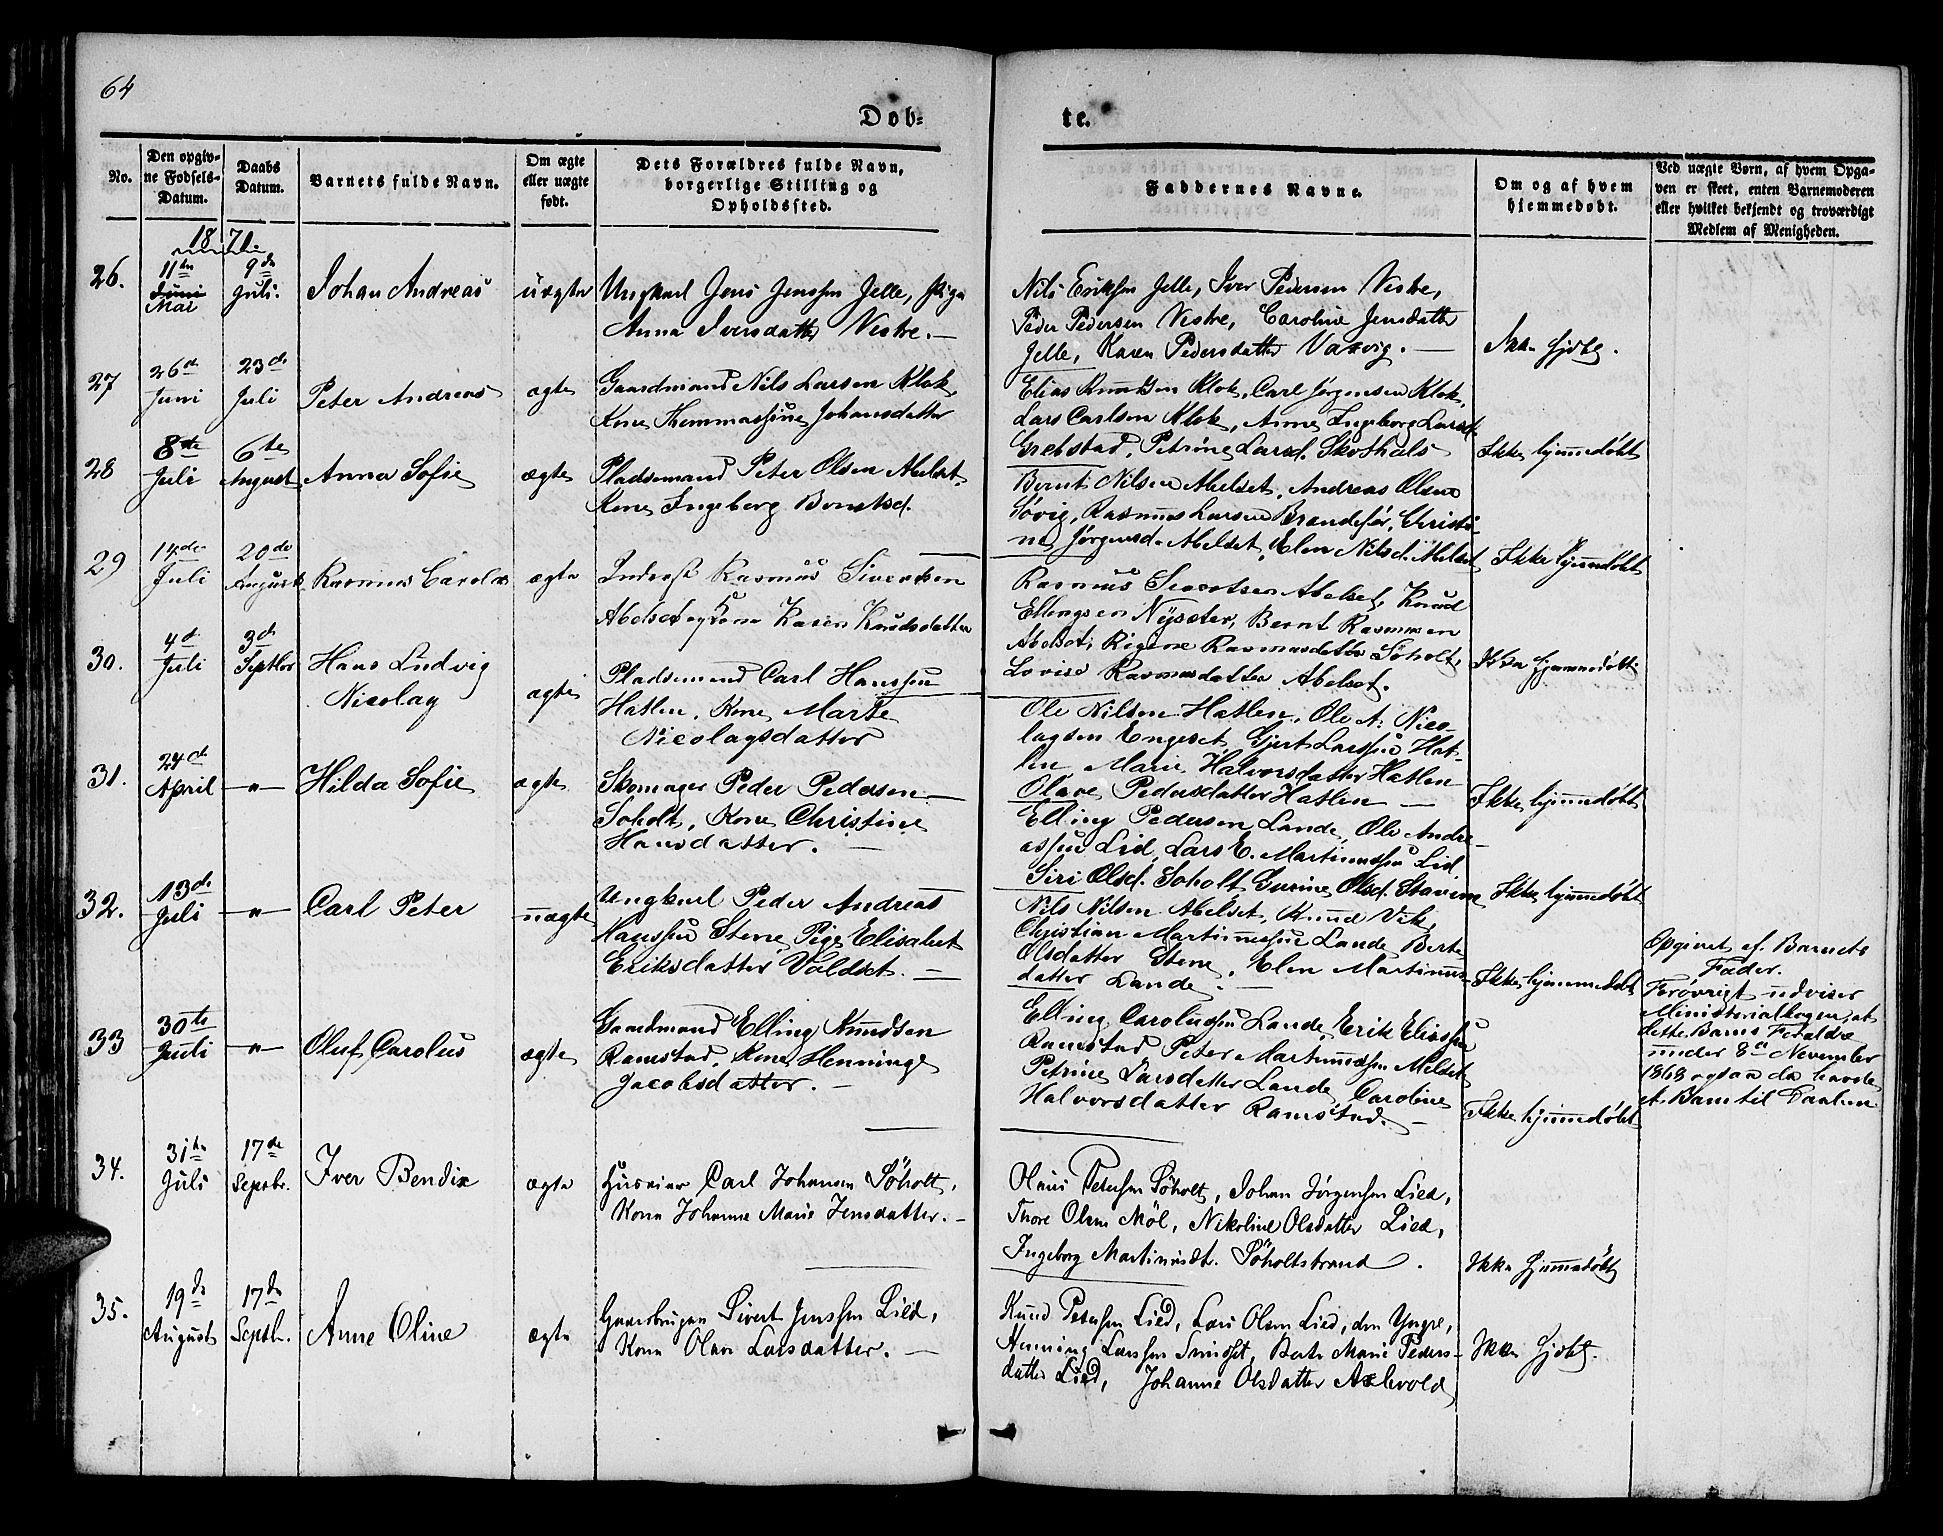 64
Døb=
te.
No.
Den opgiv=
ne Fødsels=
Datum.
Daabs
Datum.
Barnets fulde Navn.
Om ægte
eller uægte
født.
Dets Forældres fulde Navn,
borgerlige Stilling og
Opholdssted.
Faddernes Navne.
Om og af hvem
hjemmedøbt.
Ved uægte Børn, af hvem Opga=
ven er skeet, enten Barnemoderen
eller hvilket bekjendt og troværdigt
Medlem af Menigheden.
1871
26.
11te
Juni
Mai
9de
Juli.
Johan Andreas
uægte
Ungkarl Jens Jenssen Jelle, Pige
Anna Iversdatter Vestre. —
Nils Eriksen Jelle, Iver Pedersen Vestre,
Peder Pedersen Vestre, Caroline Jensdatter
Jelle, Karen Pedersdatter Vaxvig. —
Ikke hjdbt.
27
26de
Juni
23de
Juli
Peter Andreas
ægte
Gaardmand Nils Larsen Klok,
Kone Thommassine Johansdatter
Elias Knudsen Klok, Carl Jørgensen Klok,
Lars Carlsen Klok, Anne Ingeborg Larsd.
Grebstad, Petrine Larsd. Skothals
Ikke hjemmedøbt
28
8de
Juli
6te
August
Anna Sofie
ægte
Pladsemand Peter Olsen Abelset,
Kone Ingeborg Berntsd.
Bernt Nilsen Abelset, Andreas Olsen
Søvig, Rasmus Larsen Brandefør, Christi-
ne Jørgensd. Abelset, Elen Nilsd. Abelset
Ikke hjemmedøbt
29
14de
Juli
20de
August
Rasmus Carolus
ægte
Inderst Rasmus Sivertsen
Abelset og Kone Karen Knudsdatter
Rasmus Sivertsen Abelset, Knud
Ellingsen Nysæter, Bernt Rasmussen
Abelset, Rigene Rasmusdatter Søholt,
Lovise Rasmusdatter Abelset.
Ikke hjemmedøbt
30.
4de
Juli
3de
Septbr
Hans Ludvig
Nicolay
ægte
Pladsemand Carl Hanssen
Hatlen, Kone Marte
Nicolaysdatter
Ole Nilsen Hatlen, Ole A. Nico-
laysen Engeset, Gjert Larssen Hat-
len Marie Halvorsdatter Hatlen
Olave Pedersdatter Hatlen —
Ikke hjemmedøbt
31.
24de
April
— " —
Hilda Sofie
ægte
Skomager Peder Pedersen
Soholt, Kone Christine
Hansdatter. —
Elling Pedersen Lande, Ole Andre-
assen Lid, Lars E. Martinussen Lid
Siri Olsd. Soholt, Gurine Olsd. Stavem
Ikke hjemmedøbt
32.
13de
Juli
— " —
Carl Peter
uægte
Ungkarl Peder Andreas
Hanssen Stene, Pige Elisabet
Eriksdatter Voldset. —
Nils Nilsen Abelset, Knud Vik,
Christian Martinussen Lande Berte
Olsdatter Stene, Elen Martinus-
datter Lande. —
Ikke hjemmedøbt
Opgivet af Barnets
Fader.
Forøvrigt udviser
Ministerialbogen, at
dette Barns Forældre
under 8de November
1868 ogsaa da havde
et Barn til Daaben
33
30te
Juli
— " —
Oluf Carolus
ægte
Gaardmand Elling Knudsen
Ramstad, Kone Henninge
Jacobsdatter. —
Elling Carolussen Lande, Erik Eliassen
Ramstad Peter Martinussen Melset
Petrine Larsdatter Lande, Caroline
Halvorsdatter Ramstad. —
Ikke hjemmedøbt
34.
31te
Juli
17de
Septbr.
Iver Bendix
ægte
Huseier Carl Johansen Søholt,
Kone Johanne Marie Jensdatter. —
Hans Petersen Søholt, Johan Jørgensen Lied,
Thore Olsen Møl, Nikoline Olsdatter Lied,
Ingeborg Martinusdt. Søholtstrand .
Ikke hjemmedøbt
35.
19de
August
17de
Septb.
Anne Oline
ægte
Gaardbruger Sivert Jenssen Lied,
Kone Olave Larsdatter. —
Knud Petersen Lied, Lars Olsen Lied, den Yngre,
Henning Larssen Smidset, Berte Marie Peders-
datter Lied, Johanne Olsdatter Axlevold
Ikke hjdbt.